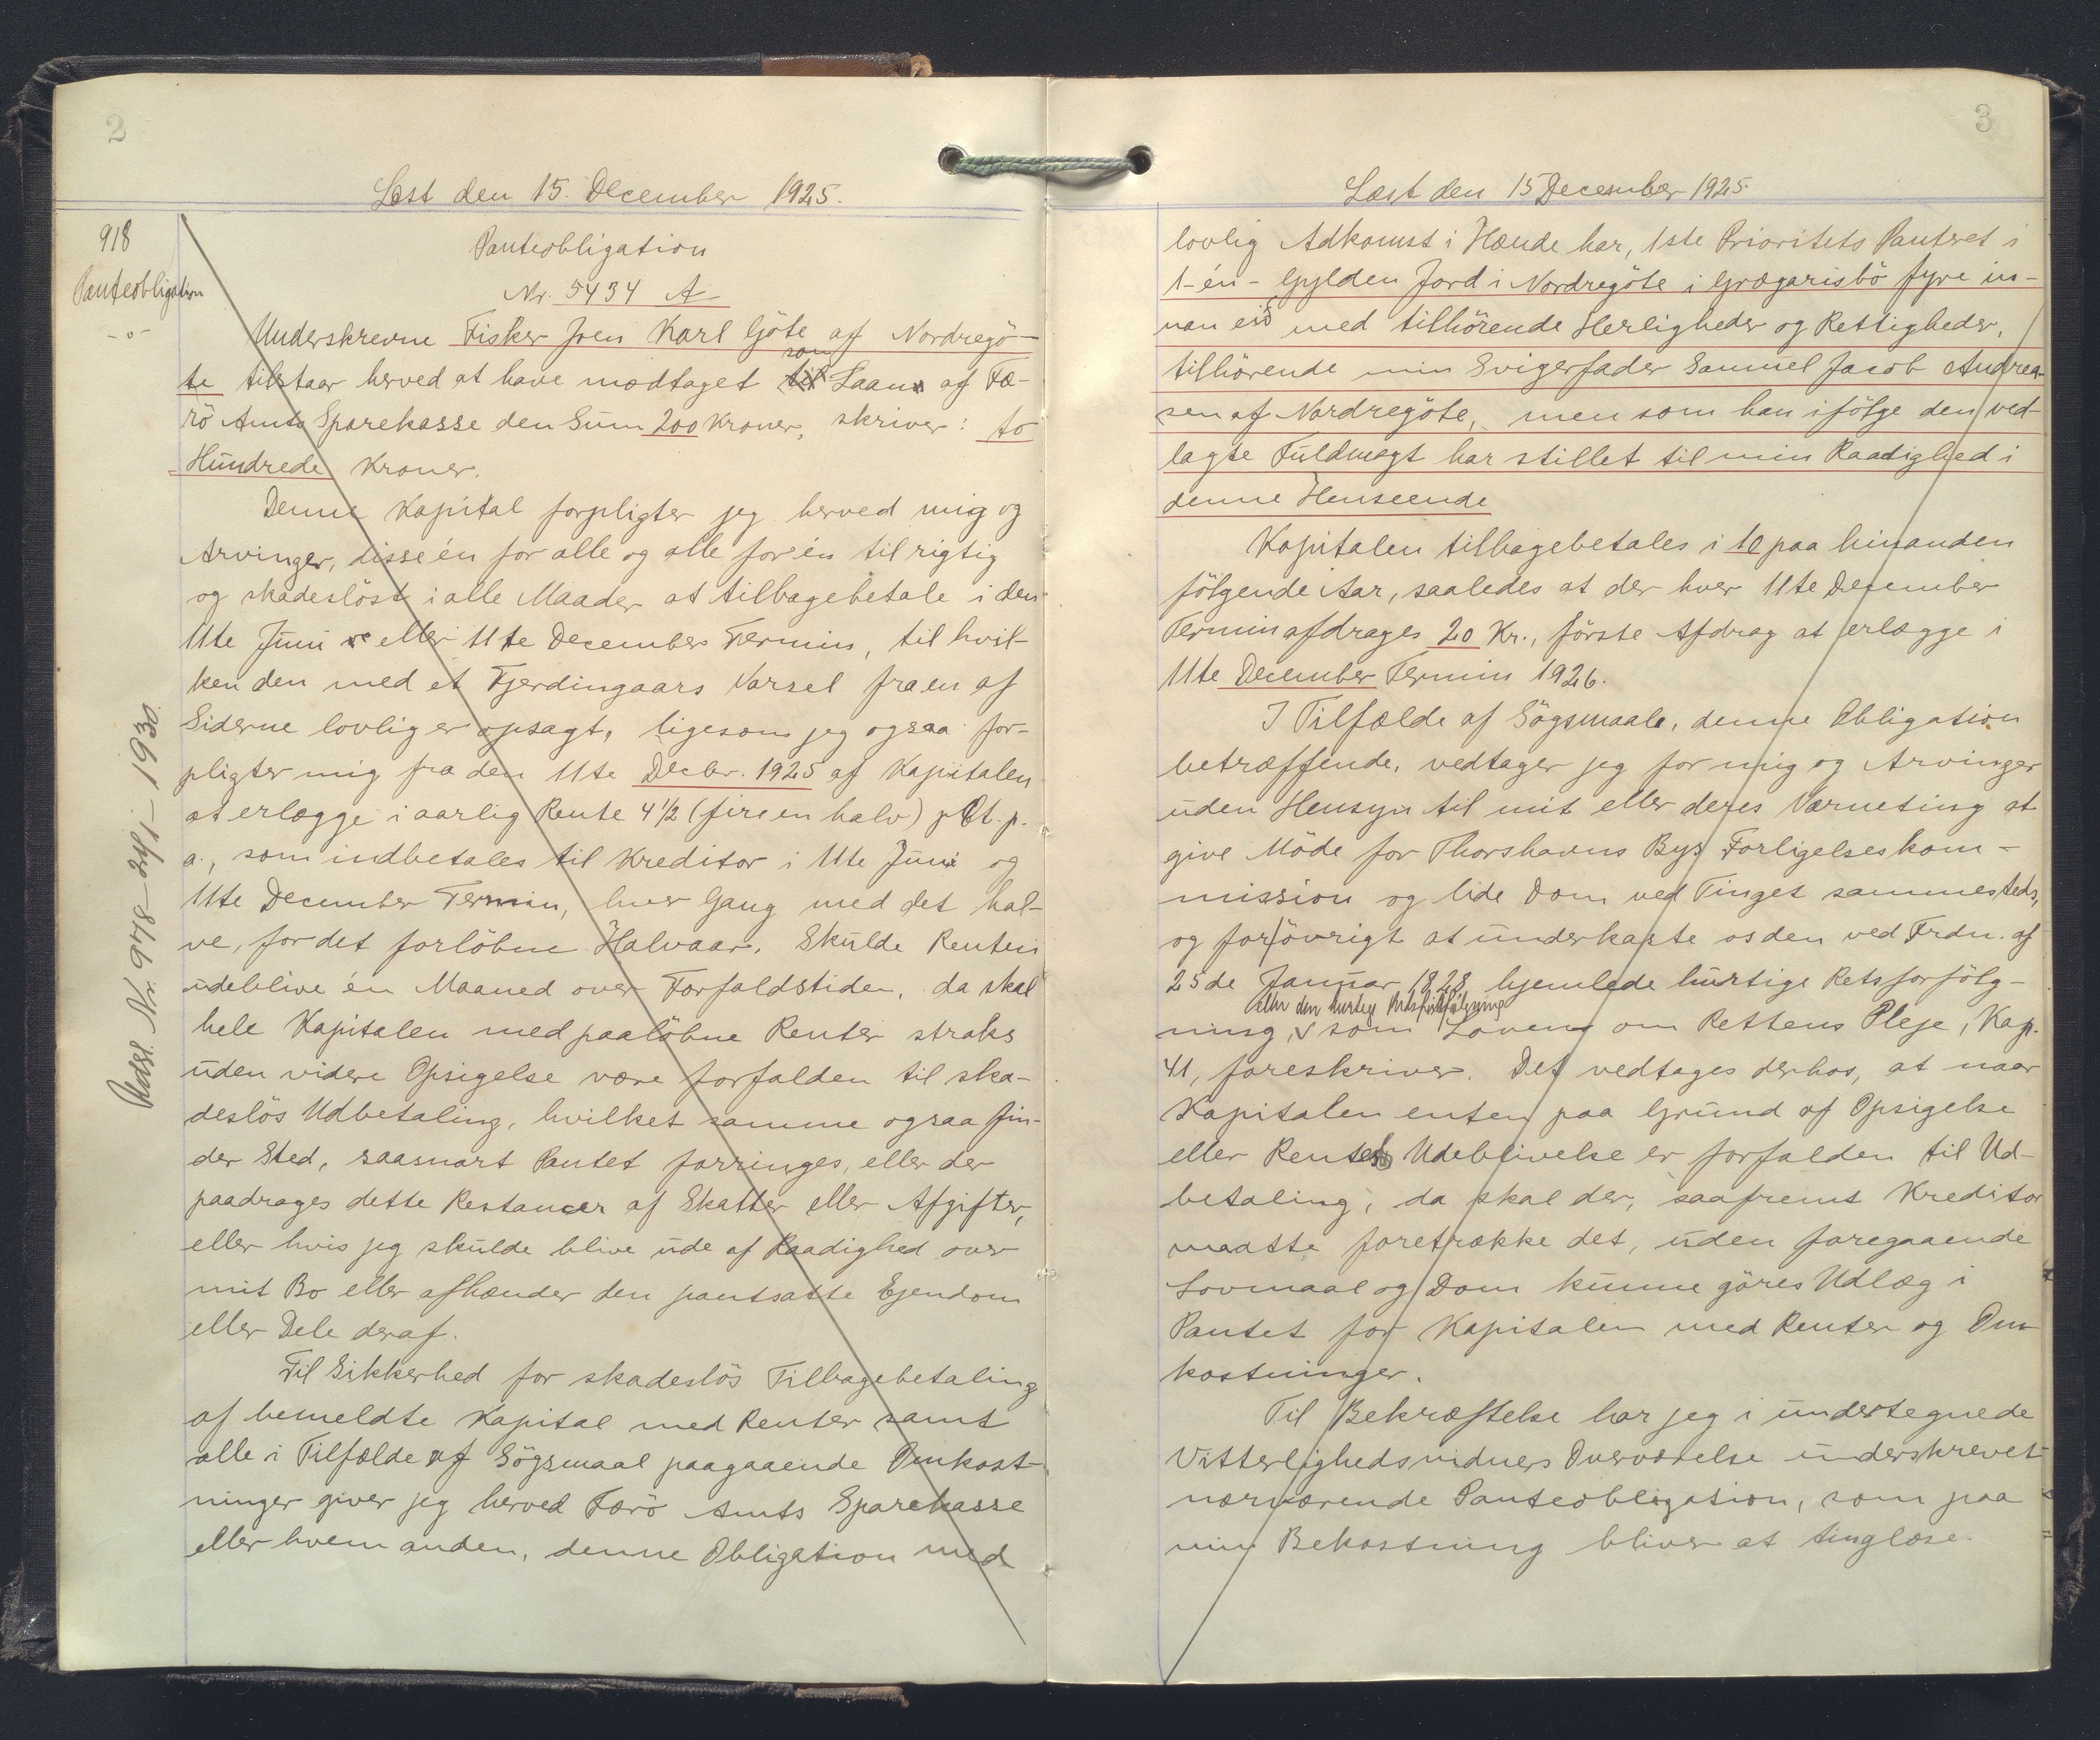 2
Læst den 15. December 1925.
918
Panteobligation
-o-
Udsl. Nr. 978-24/1-1930.
Panteobligation
Nr. 5434 A
Underskrevne Fisker Joen Karl Göte af Nordregö-
te tilstaar herved at have modtaget som Laan af Fæ-
rö Amts Sparekasse den Sum 200 Kroner, skriver: to
Hundrede Kroner.
Denne Kapital forpligter jeg herved mig og
Arvinger, disse én for alle og alle for én til rigtig
og skadeslöst i alle Maader at tilbagebetale i den
11te Juni eller 11te December Termin, til hvil-
ken den med et Fjerdingaars Varsel fra en af
Siderne lovlig er opsagt, ligesom jeg ogsaa for-
pligter mig fra den 11te Decbr. 1925 af Kapitalen
at erlægge i aarlig Rente 4 1/2 (fire en halv) pCt. p.
a., som indbetales til Kreditor i 11te Juni og
11te December Termin, hver Gang med det hal-
ve, for det forlöbne Halvaar. Skulde Renten
udeblive én Maaned over Forfaldstiden, da skal
hele Kapitalen med paalöbne Renter straks
uden videre Opsigelse være forfalden til ska-
deslös Udbetaling, hvilket samme ogsaa fin-
der Sted, saasnart Pantet forringes, eller der
paadrages dette Restancer af Skatter eller Afgifter,
eller hvis jeg skulde blive ude af Raadighed over
mit Bo eller afhænder den pantsatte Ejendom
eller Dele deraf.
Til Sikkerhed for skadeslös Tilbagebetaling
af bemeldte Kapital med Renter samt
alle i Tilfælde af Sögsmaal paagaaende Omkost-
ninger giver jeg herved Færö Amts Sparekasse
eller hvem anden, denne Obligation med
3
Læst den 15 December 1925.
lovlig Adkomst i Hænde har, 1ste Prioritets Panteret i
1-én- Gylden Jord i Nordregöte i Grægarisbö fyre in-
nan eið med tilhörende Herligheder og Rettigheder,
tilhörende min Svigerfader Samuel Jacob Andrea-
sen af Nordregöte, men som han ifölge den ved-
lagte Fuldmagt har stillet til min Raadighed i
denne Henseende
Kapitalen tilbagebetales i 10 paa hinanden
fölgende Aar, saaledes at der hver 11te December
Termin afdrages 20 Kr., förste Afdrag at erlægge i
11te December Termin 1926.
I Tilfælde af Sögsmaal, denne Obligation
betræffende, vedtager jeg for mig og Arvinger
uden Hensyn til mit eller deres Værneting at
give Möde for Thorshavns Bys Forligelseskom-
mission og lide Dom ved Tinget sammesteds,
og for övrigt at underkaste os den ved Frdn. af
25de Januar 1828 hjemlede hurtige Retsforfölg-
eller den hurtige Retsforfölgning
ning, v som Loven om Rettens Pleje, Kap.
41, foreskriver. Det vedtages derhos, at naar
Kapitalen enten paa Grund af Opsigelse
eller Rentes Udeblivelse er forfalden til Ud-
betaling, da skal der, saafremt Kreditor
maatte foretrække det, uden foregaaende
Lovmaal og Dom kunne göres Udlæg i
Pantet for Kapitalen med Renter og Om
kostninger.
Til Bekræftelse har jeg i undertegnede
Vitterlighedsvidners Overværelse underskrevet
nærværende Panteobligation, som paa
min Bekostning bliver at tinglæse.